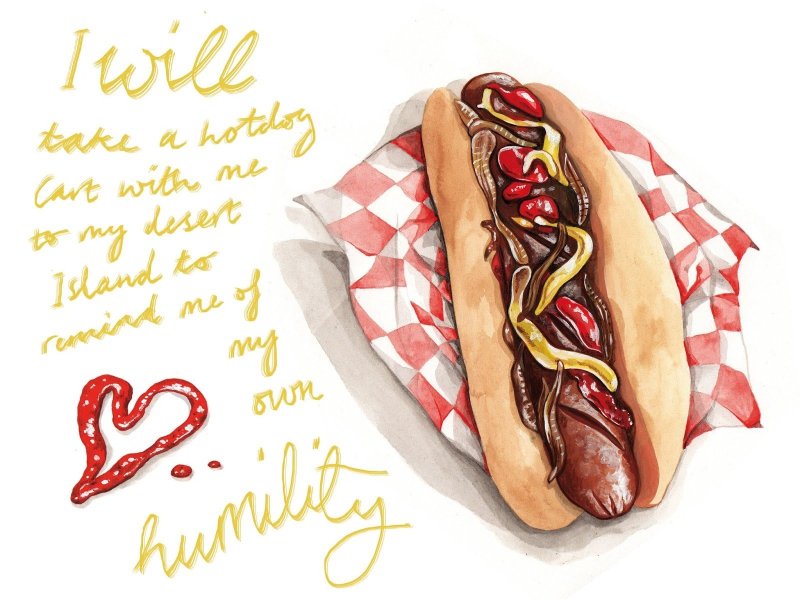 I will
take a hotdog
Cart with me
to my desert
Island to
remind me of
my
own
humility